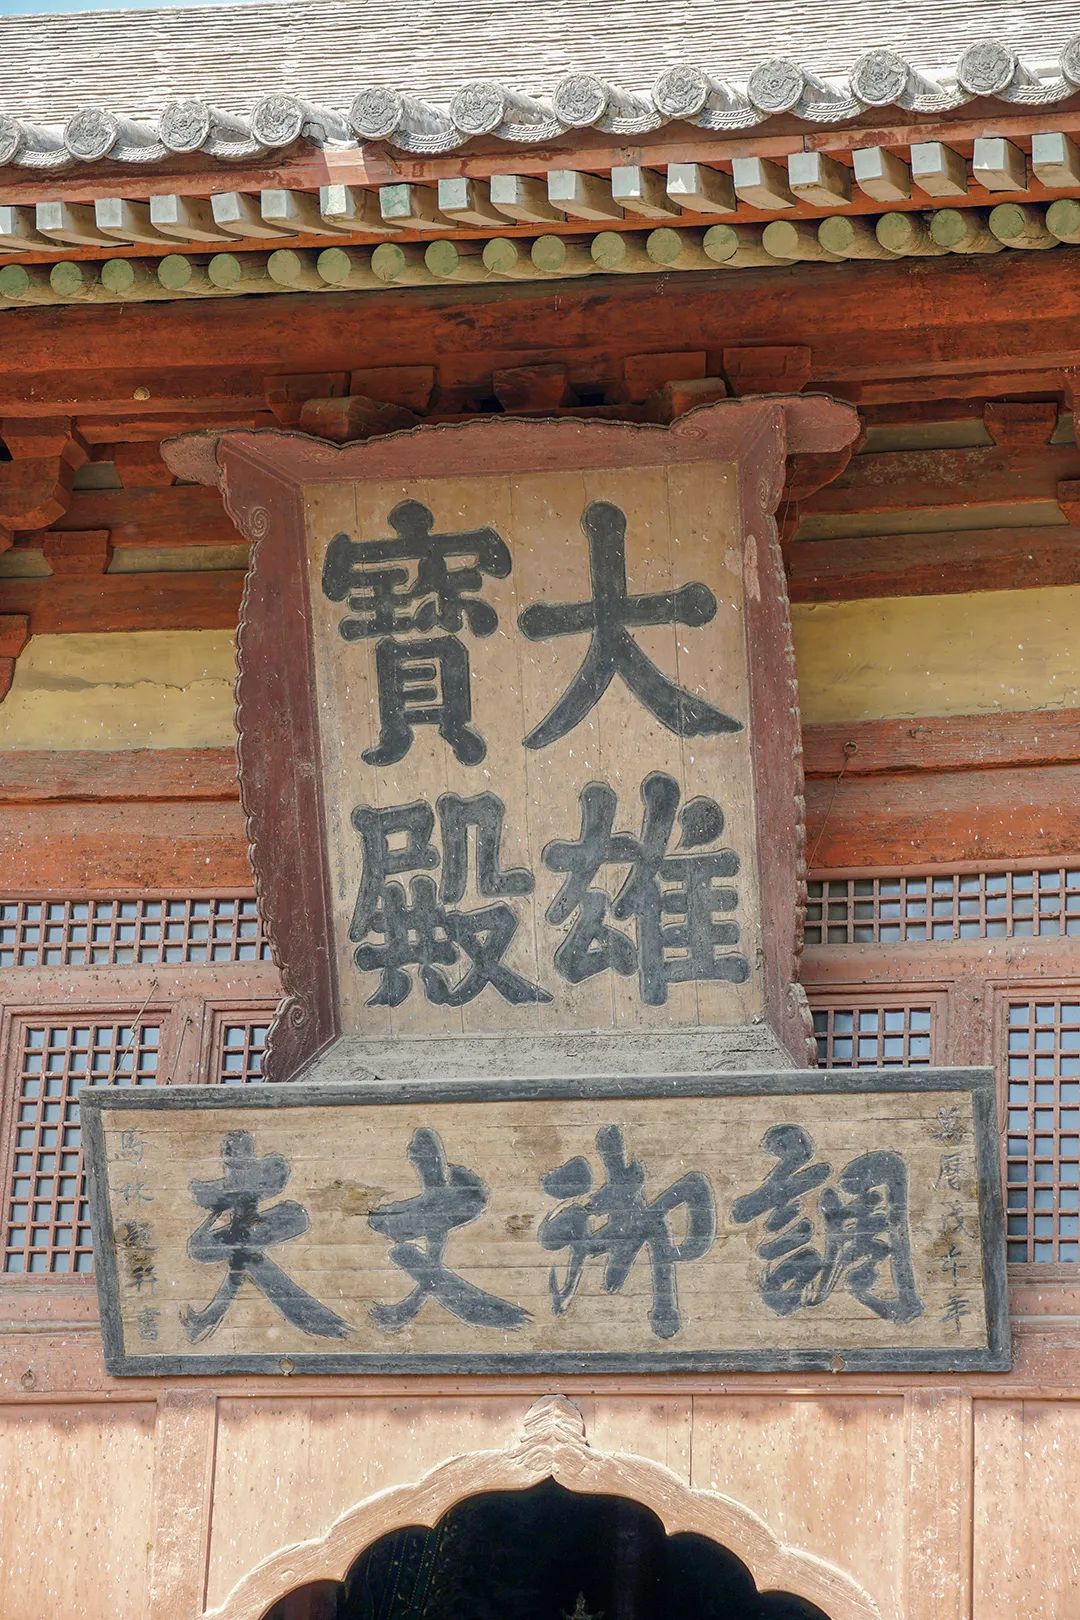 大雄
寶殿
萬曆戊午年
調御丈夫
馬林題并書